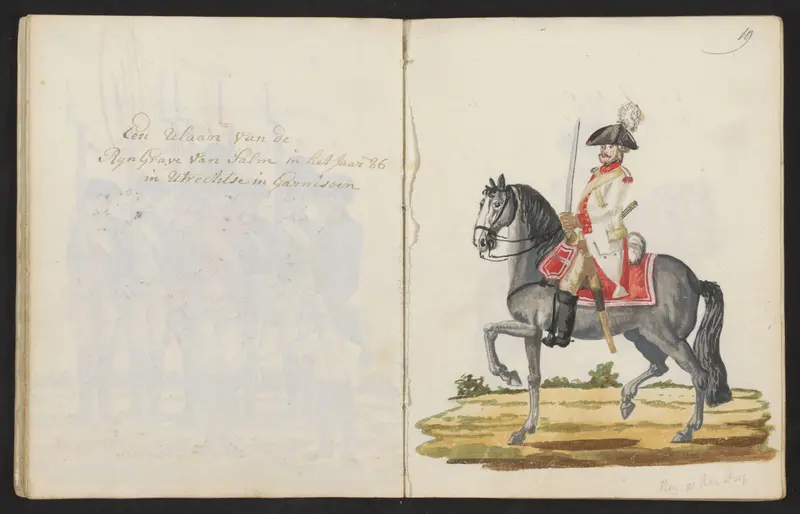 Een Ulaan van de
Ryn Grave van Salm in het Jaar 86
in Utrechtse in Garnisoen
19